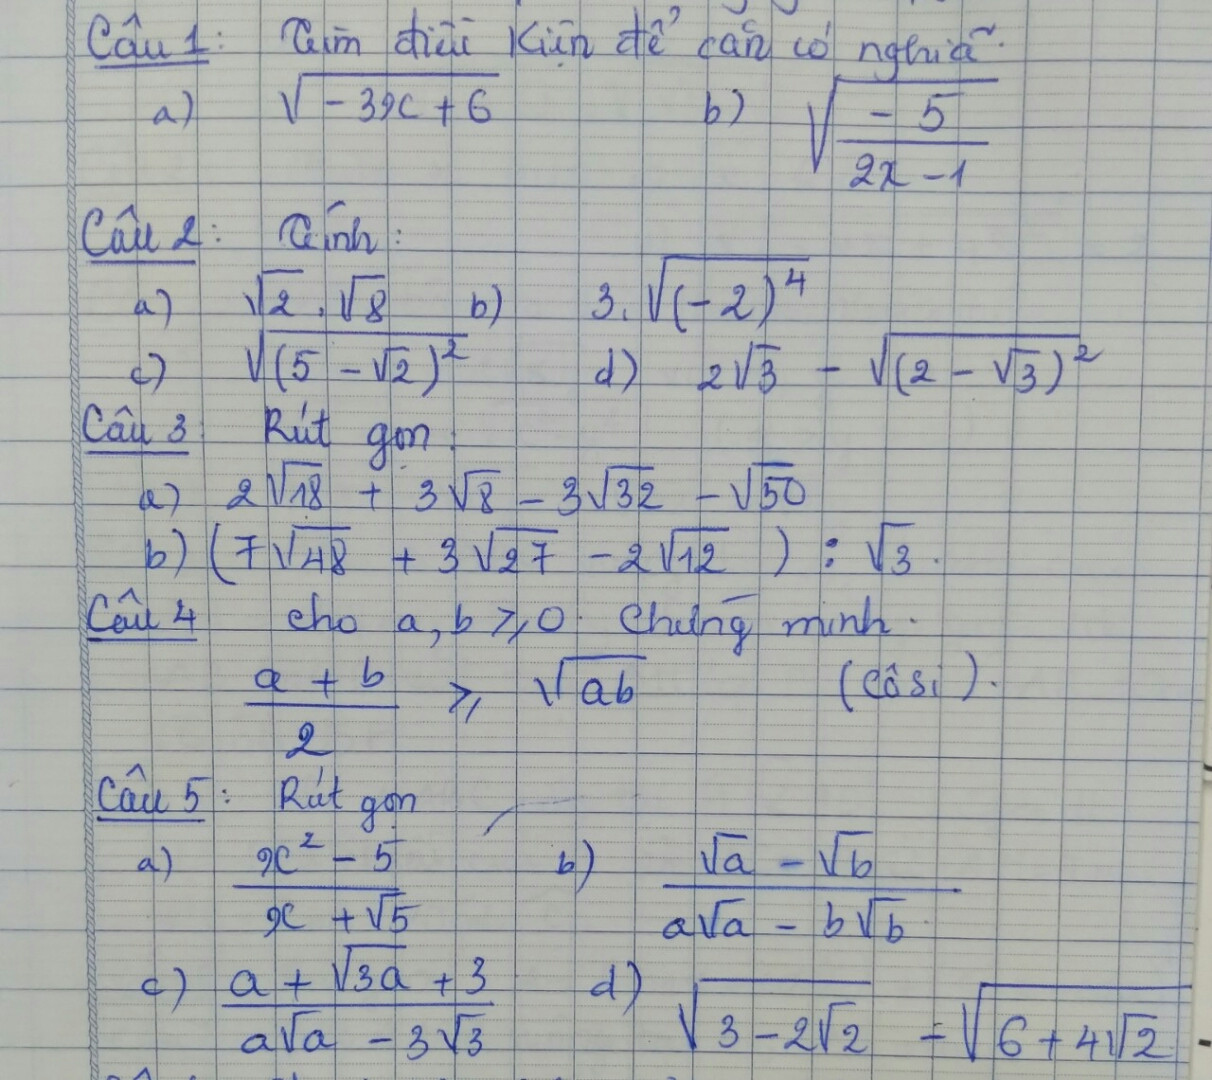 Câu 1: Tìm điều kiện để căn có nghĩa.
a) √(-3x + 6) b) √(-5/(2x - 1))
Câu 2: Tính:
a) √2 . √8 b) 3.√((-2)⁴)
c) √((5 - √2)²) d) 2√3 - √((2 - √3)²)
Câu 3 Rút gọn:
a) 2√18 + 3√8 - 3√32 - √50
b) (7√48 + 3√27 - 2√12) : √3.
Câu 4 cho a, b ⩾ 0. Chứng minh.
(a + b)/2 ⩾ √(ab) (Côsi).
Câu 5: Rút gọn
a) (x² - 5)/(x + √5) b) (√a - √b)/(a√a - b√b)
c) (a + √(3a) + 3)/(a√a - 3√3) d) √(3 - 2√2) - √(6 + 4√2)